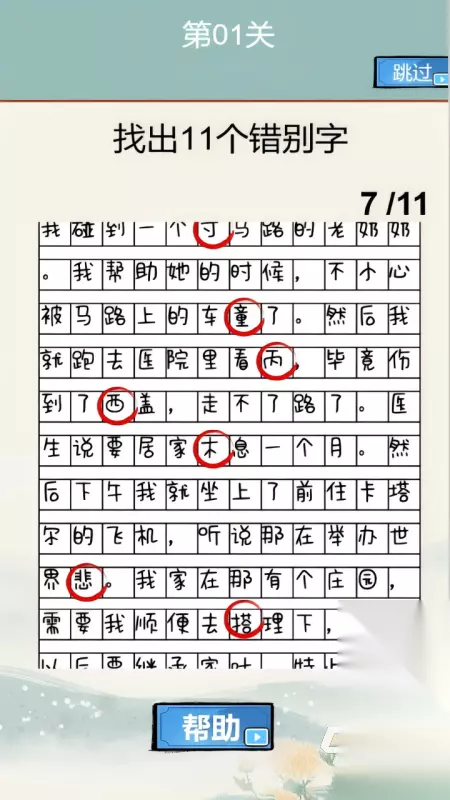 第01关
跳过
找出11个错别字
7 /11
我碰到一个寸马路的老奶奶
。我帮助她的时候，不小心
被马路上的车童了。然后我
就跑去医院里看丙，毕竟伤
到了西盖，走不了路了。医
生说要居家木息一个月。然
后下午我就坐上了前住卡塔
尔的飞机，听说那在举办世
界悲。我家在那有个庄园，
需要我顺便去搭理下，
以后要继承家叶
帮助